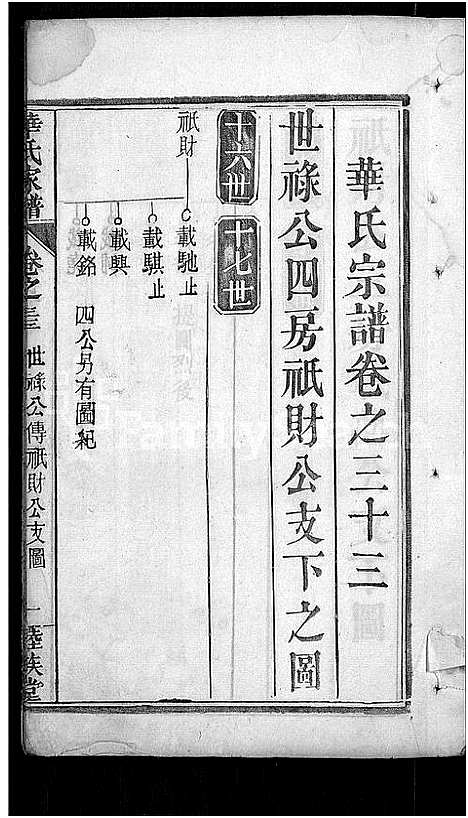 華氏宗譜卷之三十三
世祿公四房祇財公支下之圖
十六世 十七世
祇財 載馳止
載騏止
載興
載銘 四公另有圖紀
華氏家譜 卷之三 世祿公傳祇財公支圖 一 睦族堂